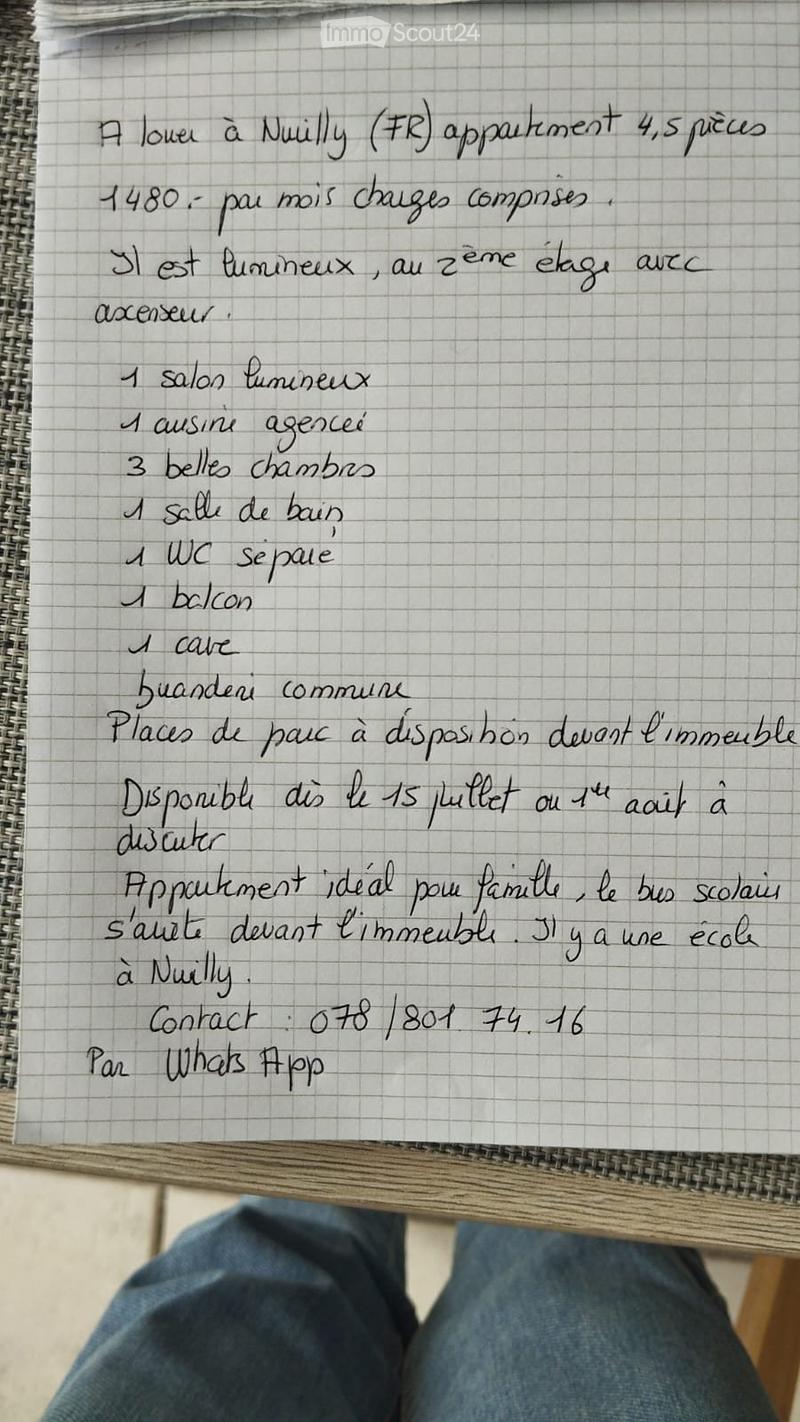 ImmoScout24
A louer à Nuilly (FR) appartement 4,5 pièces
1480.- par mois charges comprises.
Il est lumineux, au 2ème étage avec
ascenseur.
1 salon lumineux
1 cuisine agenceé
3 belles chambres
1 salle de bain
1 WC séparé
1 balcon
1 cave
buanderie commune
Places de parc à disposition devant l'immeuble
Disponible dès le 15 juillet ou 1er août à
discuter
Appartement idéal pour famille, le bus scolaire
s'arrête devant l'immeuble. Il y a une école
à Nuilly.
Contact : 078/801 74.16
Par WhatsApp